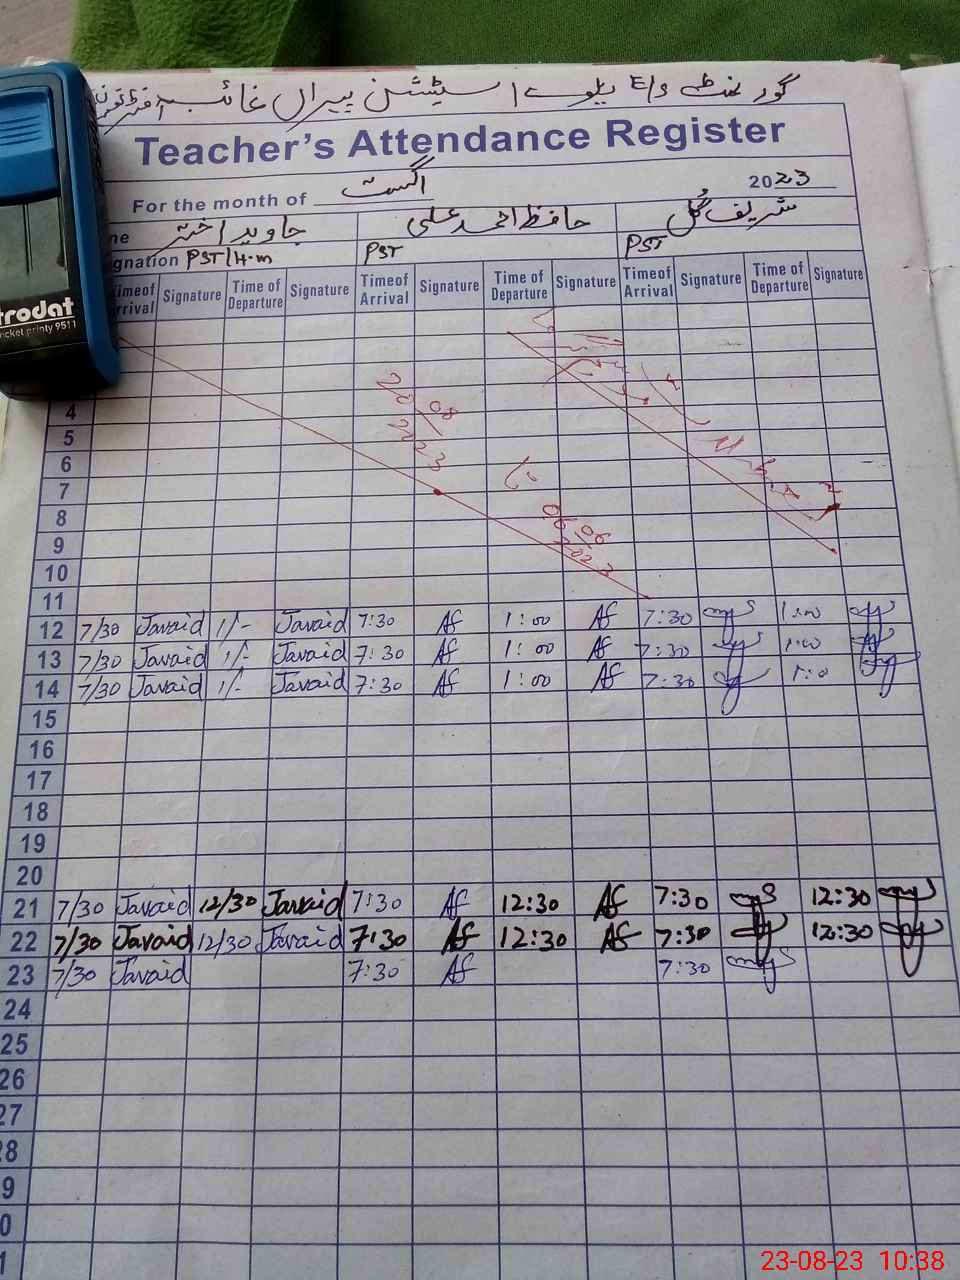 گورنمنٹ E/S ریلوے اسٹیشن پیراں غائب
Teacher's Attendance Register
For the month of اگست 2023
جاوید اختر حافظ احمد علی شریف گل
PST/H.m PST PST
Signature Time of Departure Signature Timeof Arrival Signature Time of Departure Signature Timeof Arrival Signature Time of Departure Signature
trodat
printy 9511
4
5
6
7
8
9
10
11
12 7/30 Javaid 1/- Javaid 7:30 Af 1:00 Af 7:30 1:00
13 7/30 Javaid 1/- Javaid 7:30 Af 1:00 Af 7:30 1:00
14 7/30 Javaid 1/- Javaid 7:30 Af 1:00 Af 7:30 1:0
15
16
17
18
19
20
21 7/30 Javaid 12/30 Javaid 7:30 Af 12:30 Af 7:30 12:30
22 7/30 Javaid 12/30 Javaid 7:30 Af 12:30 Af 7:30 12:30
23 7/30 Javaid 7:30 Af 7:30
24
25
26
27
28
9
0
1
23-08-23 10:38